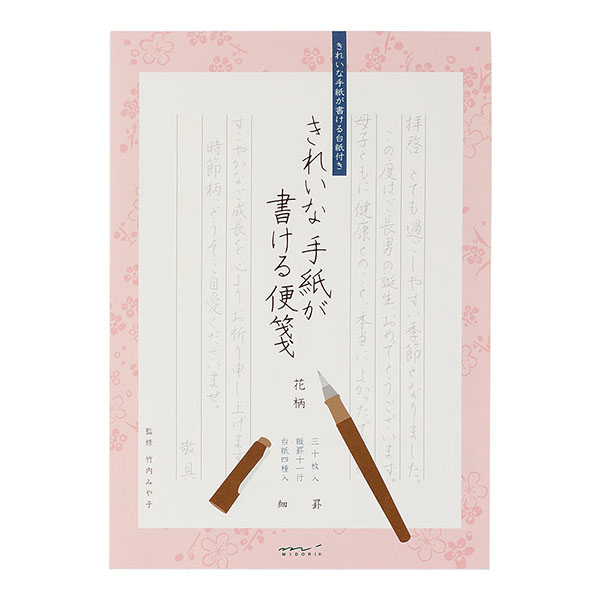 きれいな手紙が書ける台紙付き
拝啓 とても過ごしやすい季節となりました。
この度はご長男の誕生、おめでとうございます。
母子ともに健康とのこと、本当によかったで
きれいな手紙が
書ける便箋
花柄
三十枚入
縦罫十一行
台紙四種入
細罫
すこやかなご成長を心よりお祈り申し上げます
時節柄、どうぞご自愛くださいませ。
敬具
監修 竹内みや子
MIDORI®